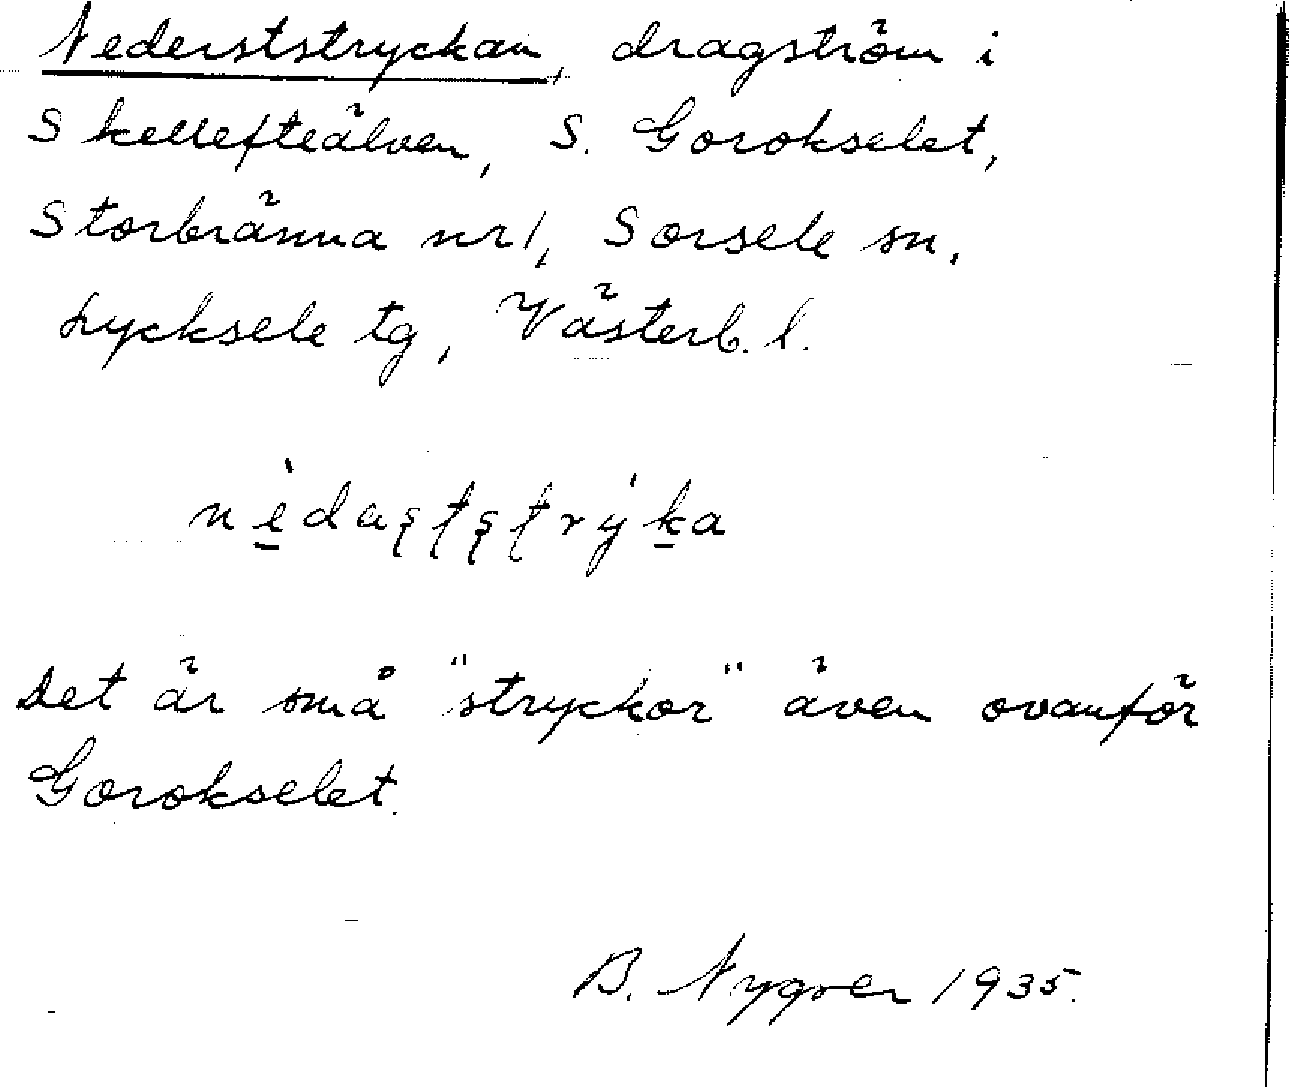 Nederststryckan, dragström i
Skellefteälven, S. Gorokselet,
Storbränna nr 1, Sorsele sn.
Lycksele tg, Västerb. l.
nèdaʂʈʂʈrýka
Det är små "stryckor" även ovanför
Gorokselet.
B. Nygren 1935.